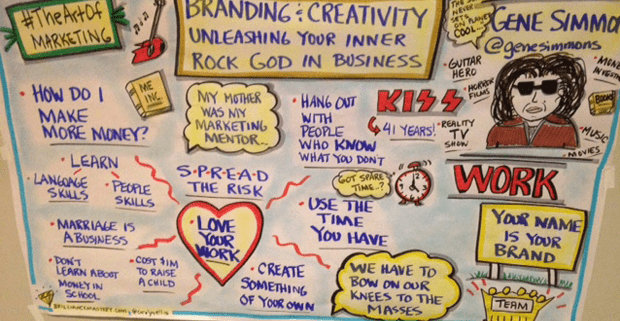 #TheArtOf
MARKETING
BRANDING & CREATIVITY
UNLEASHING YOUR INNER
ROCK GOD IN BUSINESS
THE
NEVER
SETS
ON PLANET
COOL...
GENE SIMMO
@genesimmons
• HOW DO I
MAKE
MORE MONEY?
ME
INC.
MY MOTHER
WAS MY
MARKETING
MENTOR...
• HANG OUT
WITH
PEOPLE
WHO KNOW
WHAT YOU DON'T
KISS
41 YEARS!
• GUITAR
HERO
• HORROR
FILMS
• REALITY
TV
SHOW
• MONE
INVESTM
BOOKS
• MUSIC
• MOVIES
LEARN
• LANGUAGE
SKILLS
• PEOPLE
SKILLS
• MARRIAGE IS
A BUSINESS
• DON'T
LEARN ABOUT
MONEY IN
SCHOOL
• COST $1M
TO RAISE
A CHILD
S•P•R•E•A•D
THE RISK
• LOVE
YOUR
WORK
GOT SPARE
TIME..?
• USE THE
TIME
YOU HAVE
• CREATE
SOMETHING
OF YOUR OWN
WE HAVE TO
BOW ON OUR
KNEES TO THE
MASSES
WORK
YOUR NAME
IS YOUR
BRAND
TEAM